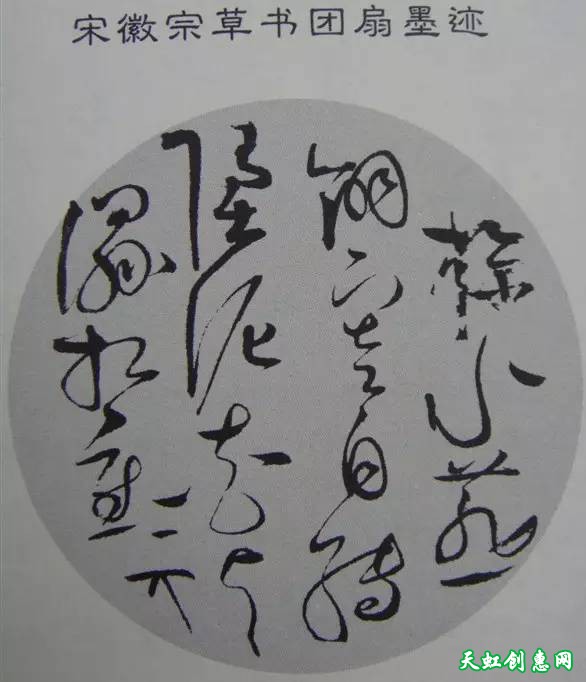 宋徽宗草书团扇墨迹
掠水燕
翎寒自轉
墮泥花片
濕相重
天虹创惠网